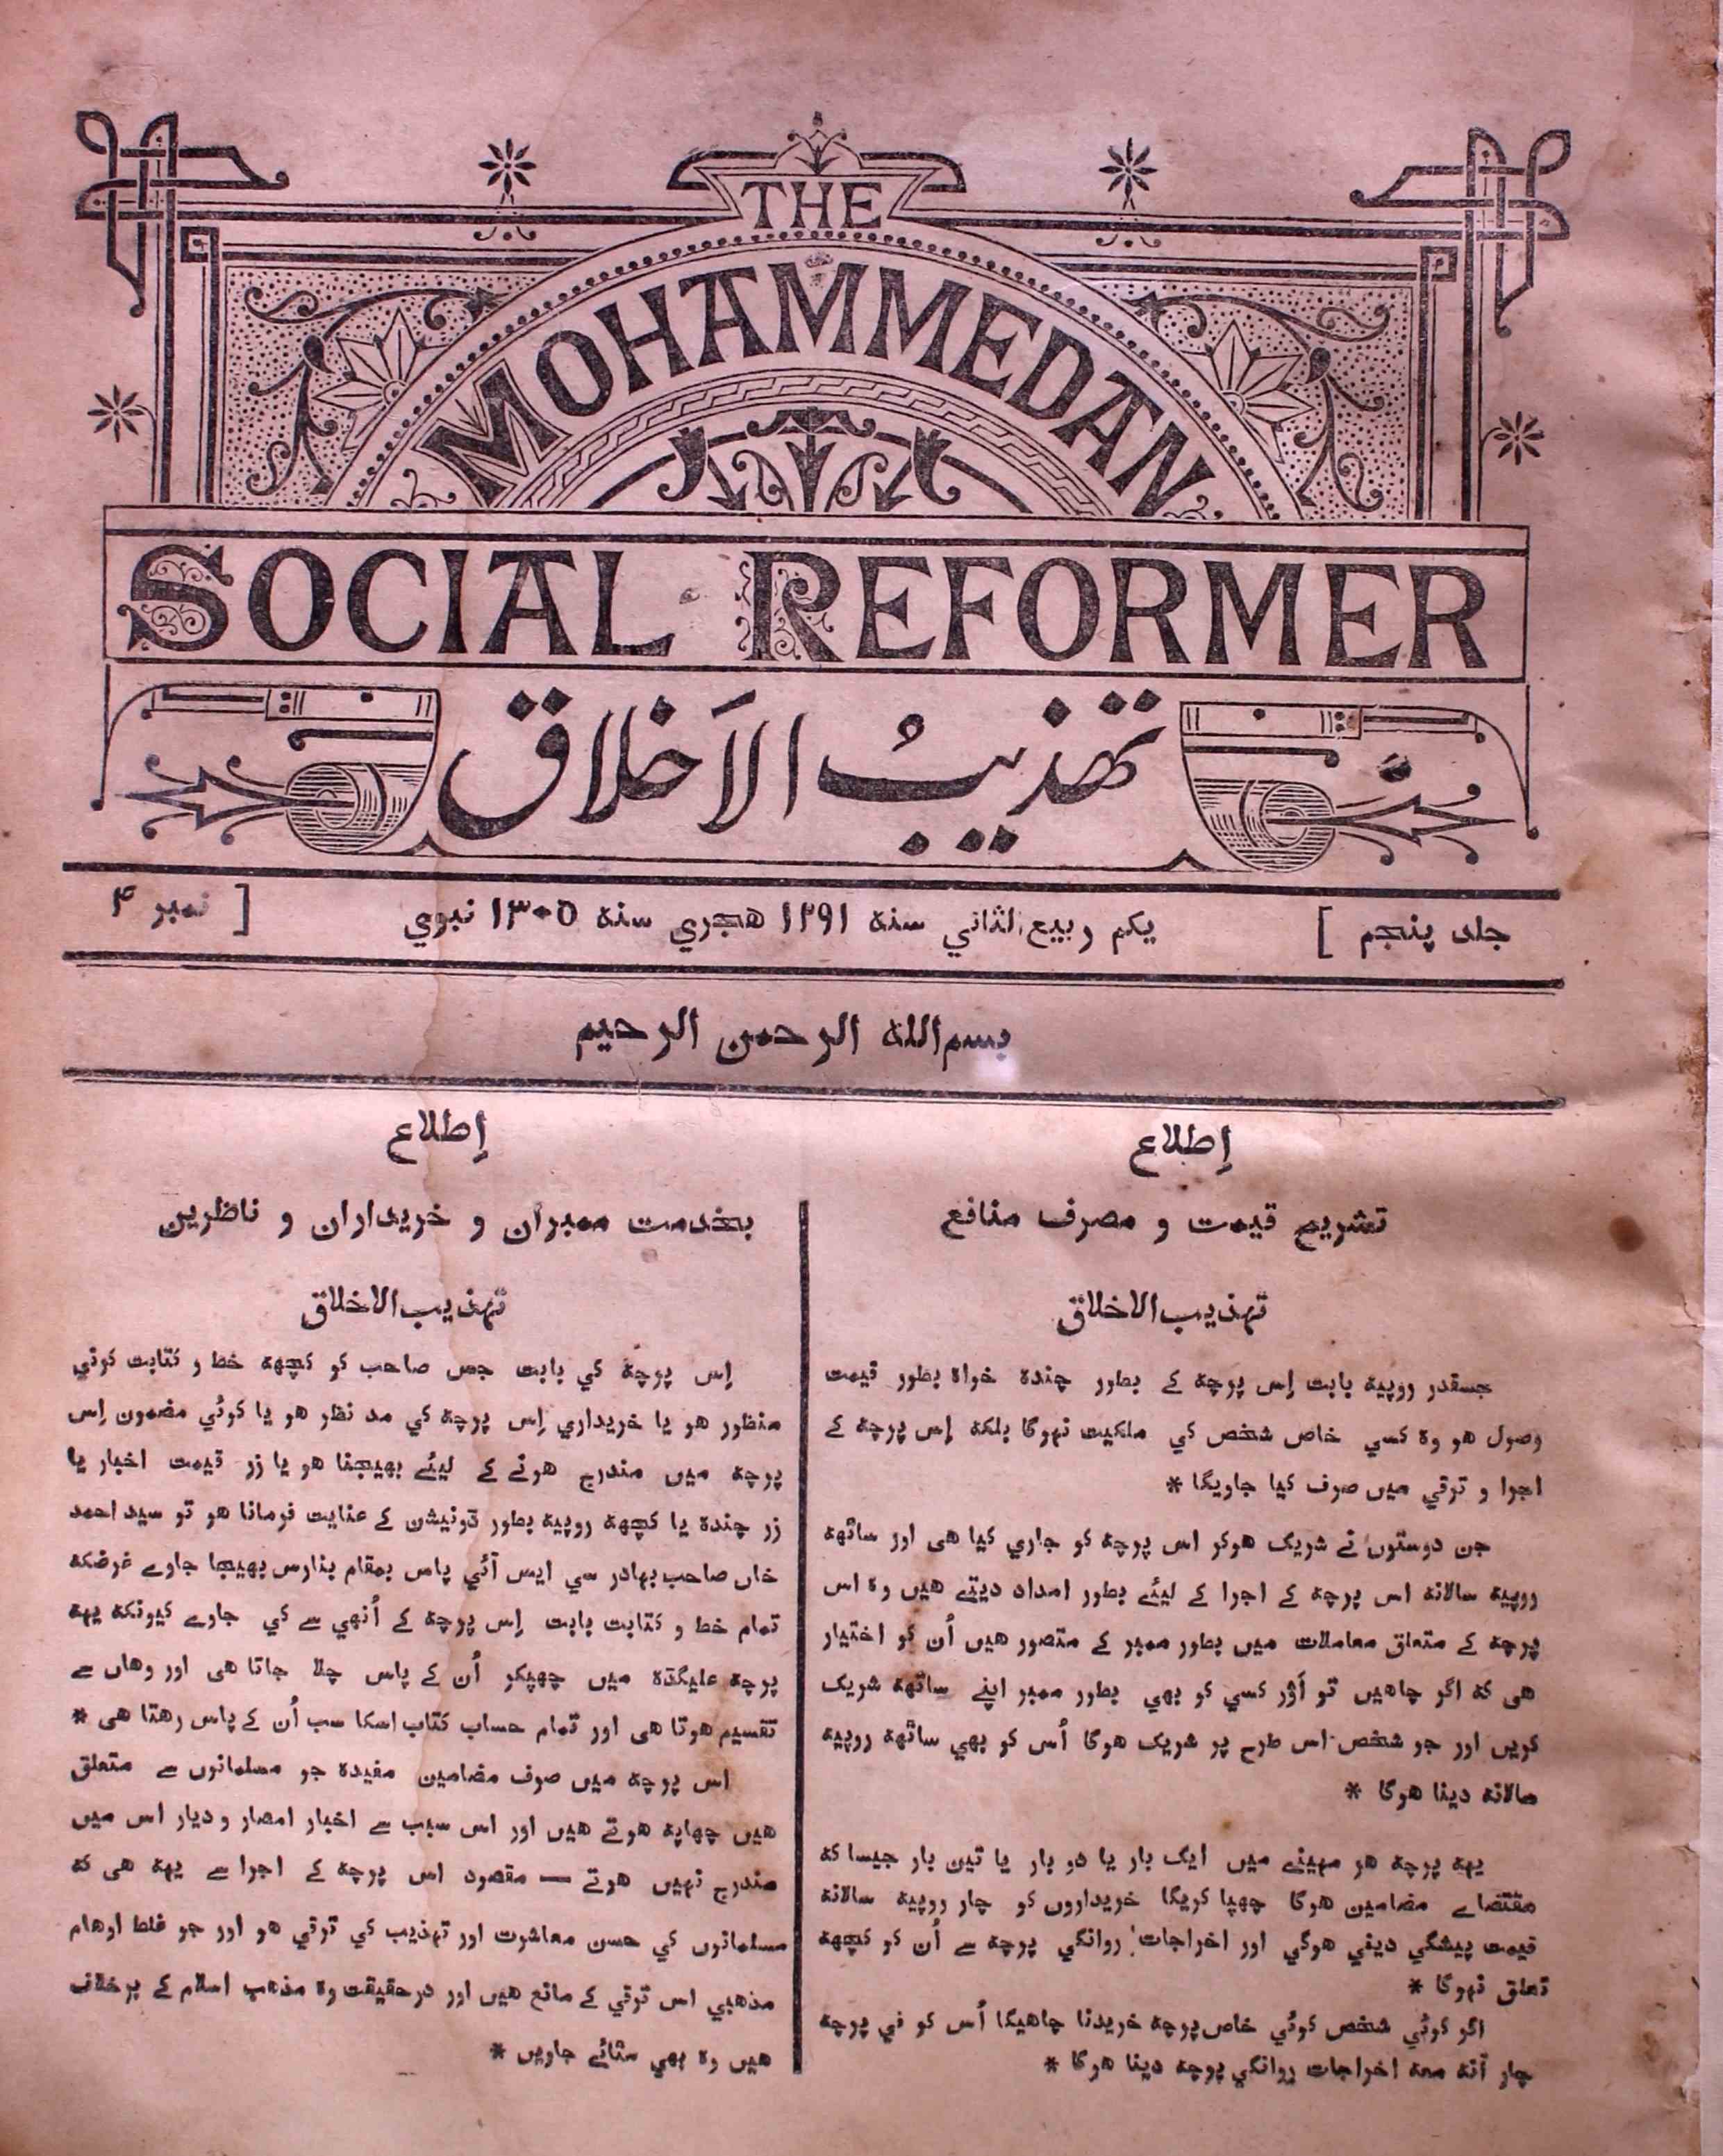 THE
MOHAMMEDAN
SOCIAL REFORMER
تهذیبُ الاَخلاق
جلد پنجم ] یکم ربیع الثاني سنة ۱۲۹۱ هجري سنة ۱۳۰۵ نبوي [ نمبر ۴
بسم الله الرحمن الرحیم
اِطلاع
تشریح قیمت و مصرف منافع
تهذیب الاخلاق
جسقدر روپیه بابت اِس پرچه کے بطور چنده خواه بطور قیمت
وصول هو وه کسي خاص شخص کي ملکیت نهوگا بلکه اِس پرچه کے
اجرا و ترقي میں صرف کیا جاویگا *
جن دوستوں نے شریک هوکر اس پرچه کو جاري کیا هی اور ساٹهه
روپیه سالانه اس پرچه کے اجرا کے لیئے بطور امداد دیتے هیں وه اس
پرچه کے متعلق معاملات میں بطور ممبر کے متصور هیں اُن کو اختیار
هی که اگر چاهیں تو اَوْر کسي کو بهي بطور ممبر اپنے ساتهه شریک
کریں اور جو شخص اس طرح پر شریک هوگا اُس کو بهي ساٹهه روپیه
سالانه دینا هوگا *
یهه پرچه هر مهینے میں ایک بار یا دو بار یا تین بار جیسا که
مقتضاے مضامین هوگا چهپا کریگا خریداروں کو چار روپیه سالانه
قیمت پیشگي دیني هوگي اور اخراجات روانگي پرچه سے اُن کو کچهه
تعلق نهوگا *
اگر کوئي شخص کوئي خاص پرچه خریدنا چاهیگا اُس کو في پرچه
چار آنه معه اخراجات روانگي پرچه دینا هوگا *
اِطلاع
بخدمت ممبران و خریداران و ناظرین
تهذیب الاخلاق
اِس پرچه کي بابت جس صاحب کو کچهه خط و کتابت کرني
منظور هو یا خریداري اِس پرچه کي مد نظر هو یا کوئي مضمون اِس
پرچه میں مندرج هونے کے لیئے بهیجنا هو یا زر قیمت اخبار یا
زر چنده یا کچهه روپیه بطور ڈونیشن کے عنایت فرمانا هو تو سید احمد
خاں صاحب بهادر سي ایس آئي پاس بمقام بنارس بهیجا جاوے غرضکه
تمام خط و کتابت بابت اِس پرچه کے اُنهي سے کي جاوے کیونکه یهه
پرچه علیگڈه میں چهپکر اُن کے پاس چلا جاتا هی اور وهاں سے
تقسیم هوتا هی اور تمام حساب کتاب اسکا سب اُن کے پاس رهتا هی *
اس پرچه میں صرف مضامین مفیده جو مسلمانوں سے متعلق
هیں چهاپه هوتے هیں اور اس سبب سے اخبار امصار و دیار اس میں
مندرج نهیں هوتے — مقصود اس پرچه کے اجرا سے یهه هی که
مسلمانوں کي حسن معاشرت اور تهذیب کي ترقي هو اور جو غلط اوهام
مذهبي اس ترقي کے مانع هیں اور درحقیقت وه مذهب اسلام کے برخلاف
هیں وه بهي مٹائے جاویں *